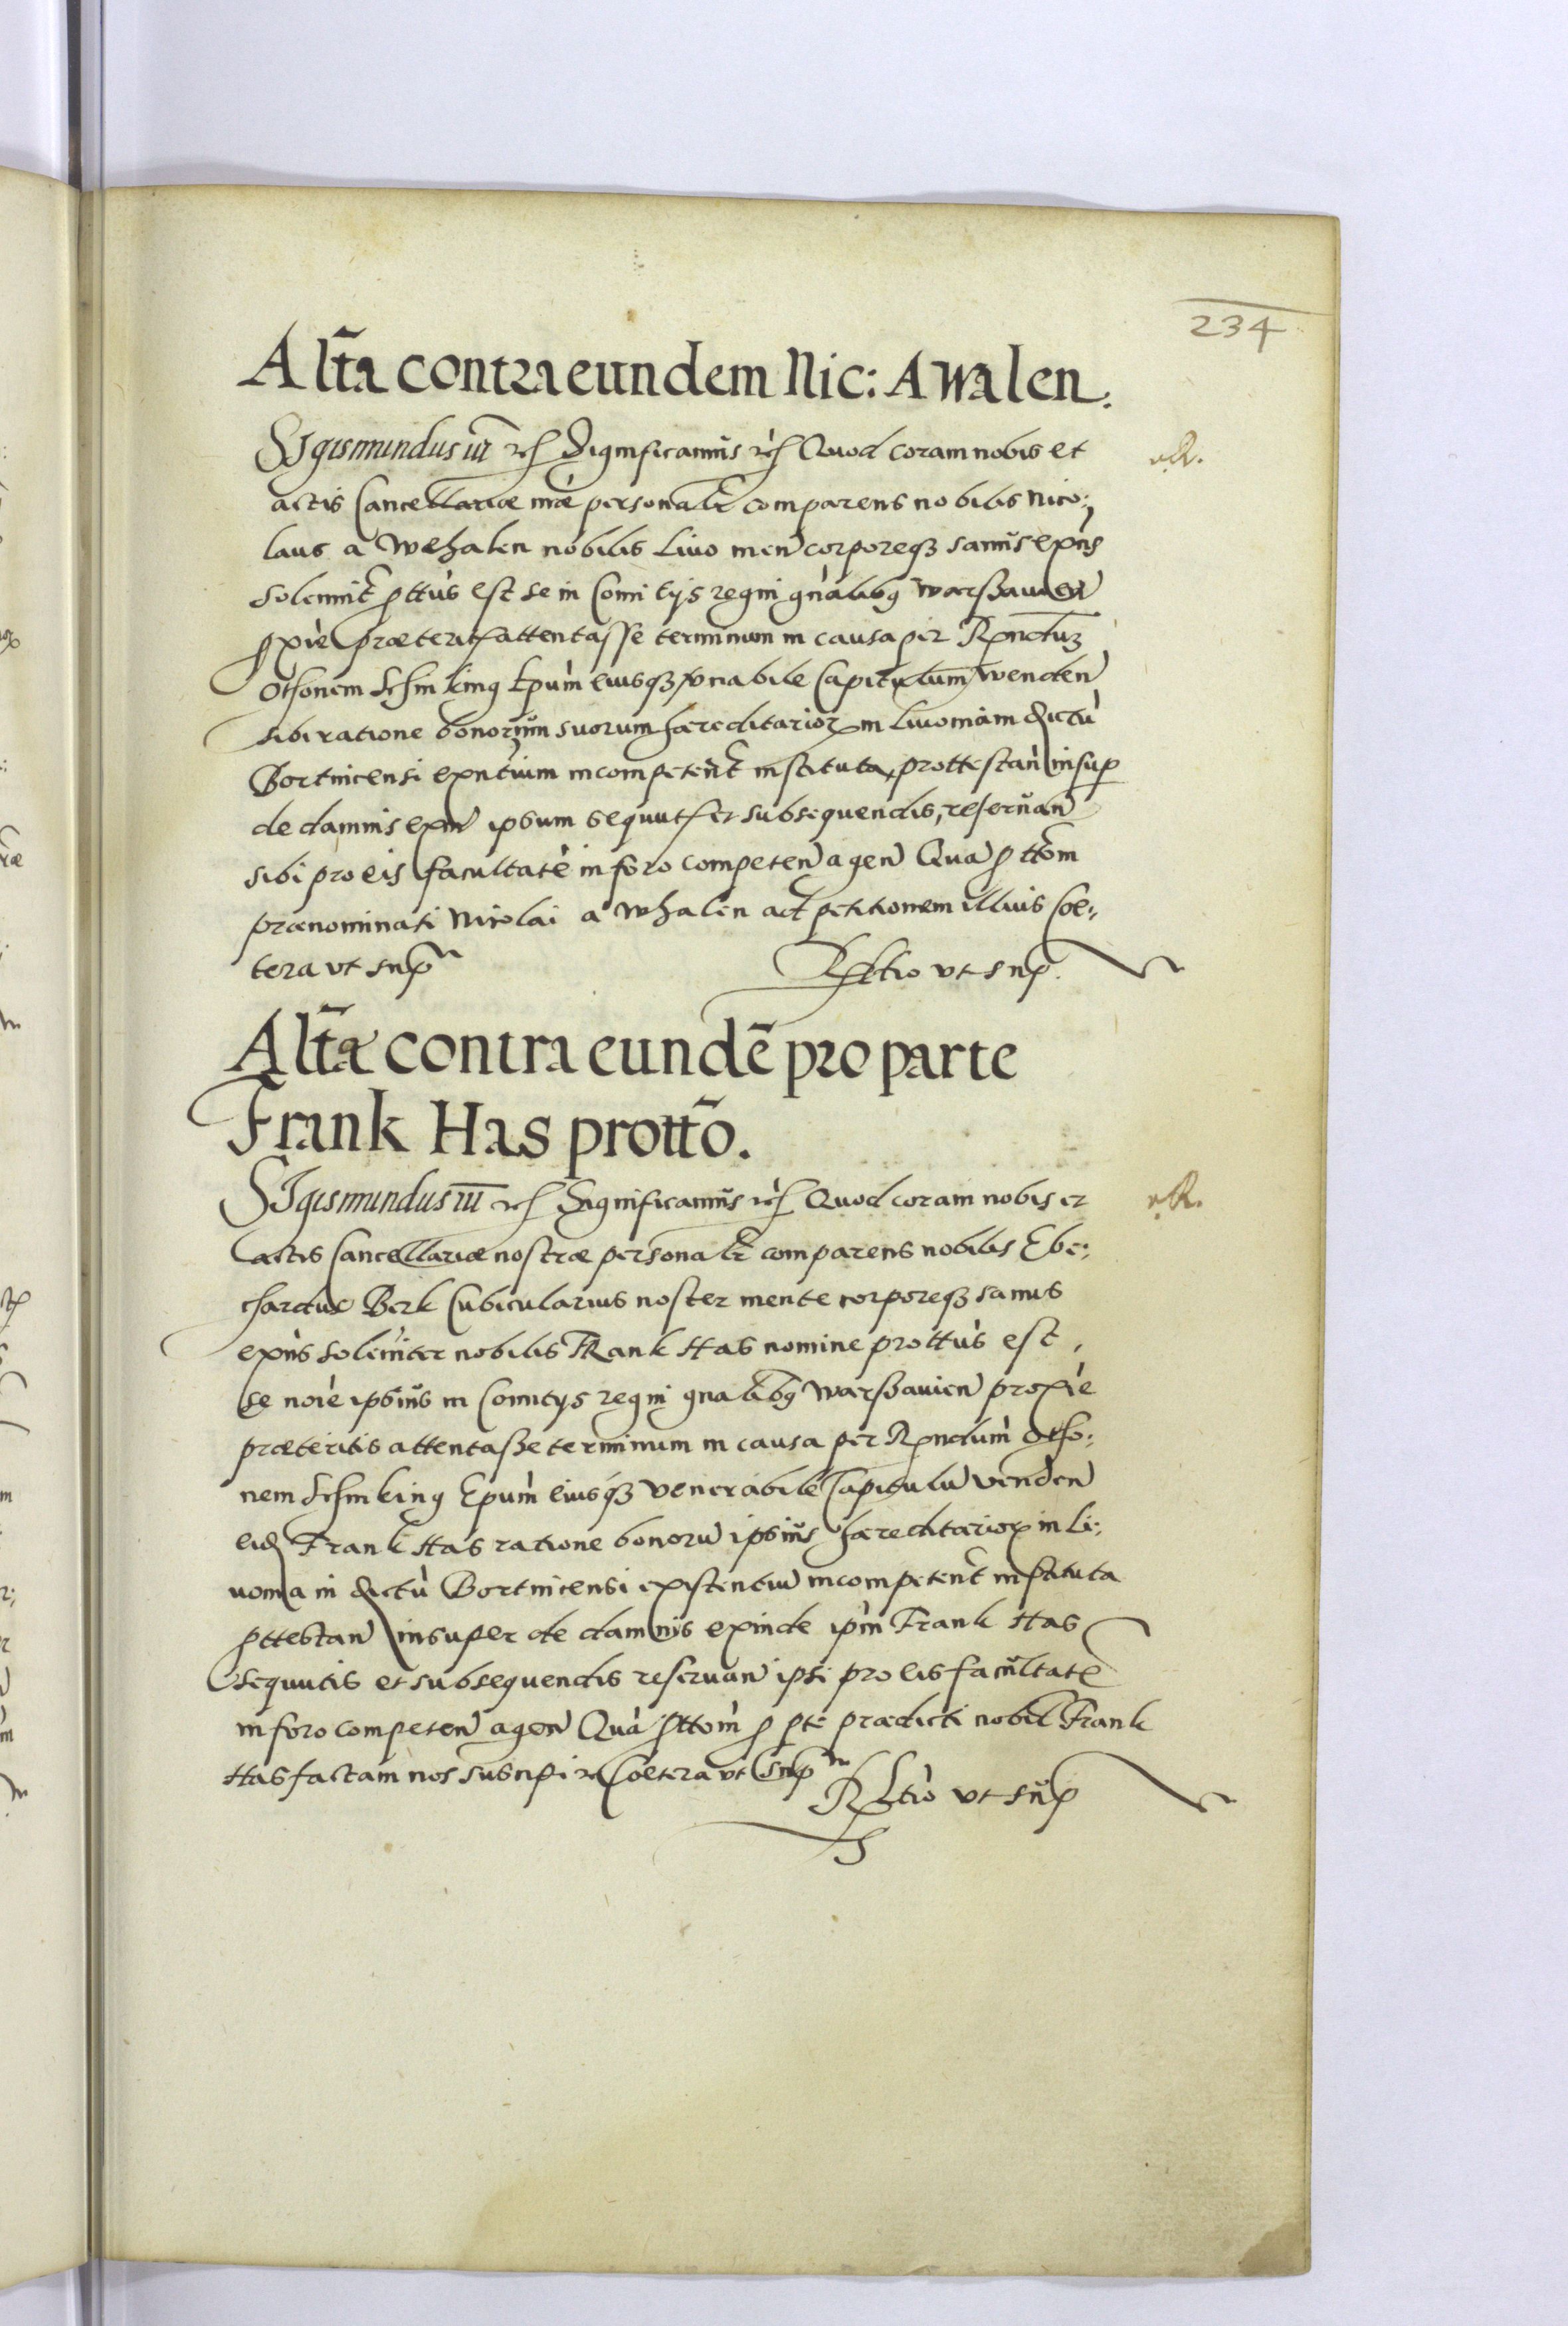 234
Alt̃a contra eundem Nic: A Walen.
Sigismundus iii rc̃ Significamus rc̃ Quod coram nobis et
actis Cancellariæ nr̃æ personalr̃ comparens nobilis Nico:
laus a Wehalen nobilis Livo men̄ corporeqʒ sanus exñs
solennit̃ ꝓttus est se in Comitijs regni gñalibꝯ Warßauien̄
ꝓxie præterit̃ attentasse terminum in causa per Rṇndum
Othonem Schinking Epũm eiusqʒ vñabile Capitulum Wenden̄
sibi ratione bonorum suorum hæreditarioꝝ in Livonia in dictu
Bortnicensi exñtium incompetent̃ instituta, prottestan̄ insuꝑ
de damnis exin̄ ipsum sequut̃ et subsequendis, reseruan̄
sibi pro eis facultatē in foro competen̄ agen̄ Qua ꝓttõm
prænominati Nicolai a Whalen act̃ petitionem illius Cæ:
tera vt supra Rltio vt sup.
Alt̃a contra eundē pro parte
Frank Has prottõ.
Sigismundus iii rc̃ Significamus rc̃ Quod coram nobis et
actis Cancellariæ nostræ personalr̃ comparens nobilis Ebe:
rhardus Berk Cubicularius noster mente corporeqʒ sanus
exñs solenniter nobilis Frank Has nomine prottus est,
se noiē ipsius in Comitijs regni gnalibꝯ Warßauien̄ proxiē
præteritis attentaße terminum in causa per Rṇndum Otho:
nem Schinking Epũm eiusqʒ venerabile Capitulū venden̄
eid̃ Frank Has ratione bonorū ipsius hæreditarioꝝ in Li:
uonia in dictu Bortnicensi existentiū incompetent̃ instituta
ꝓttestan̄ insuper de damnis exinde ipm̃ Frank Has
sequutis et subsequendis reseruan̄ ipsi pro eis facultatē
in foro competen̄ agen̄ Qua ꝓttõm ꝓ pte prædicti nobil Frank
Has factam nos suscipi rc̃ Cætera vt supra
Rltio vt sup